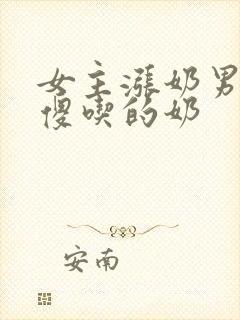 女主涨奶男
傻喫的奶
安南